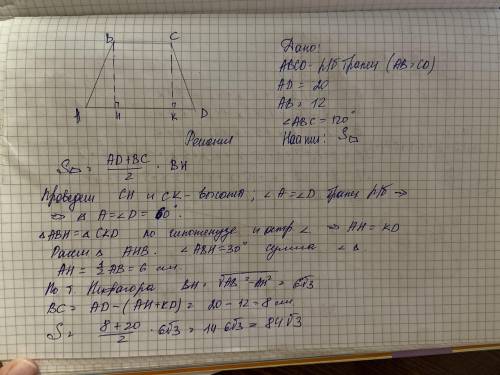 B C
A H K D
Дано:
ABCD - р/б трапец (AB=CD)
AD = 20
AB = 12
∠ABC = 120°
Найти: S
Решение
S = (AD+BC)/2 · BH
Проведем CH и CK - высота; ∠A=∠D трапец р/б →
⇒ ∠A=∠D= 60°.
△ABH = △CKD по гипотенузе и остр ∠ ⇒ AH = KD
Рассм △ AHB. ∠ABH=30° сумма ∠ △
AH = 1/2 AB = 6 см
По т Пифагора BH = √AB²-AH² = 6√3
BC = AD-(AH+KD) = 20-12=8 см
S = (8+20)/2 · 6√3 = 14·6√3 = 84√3